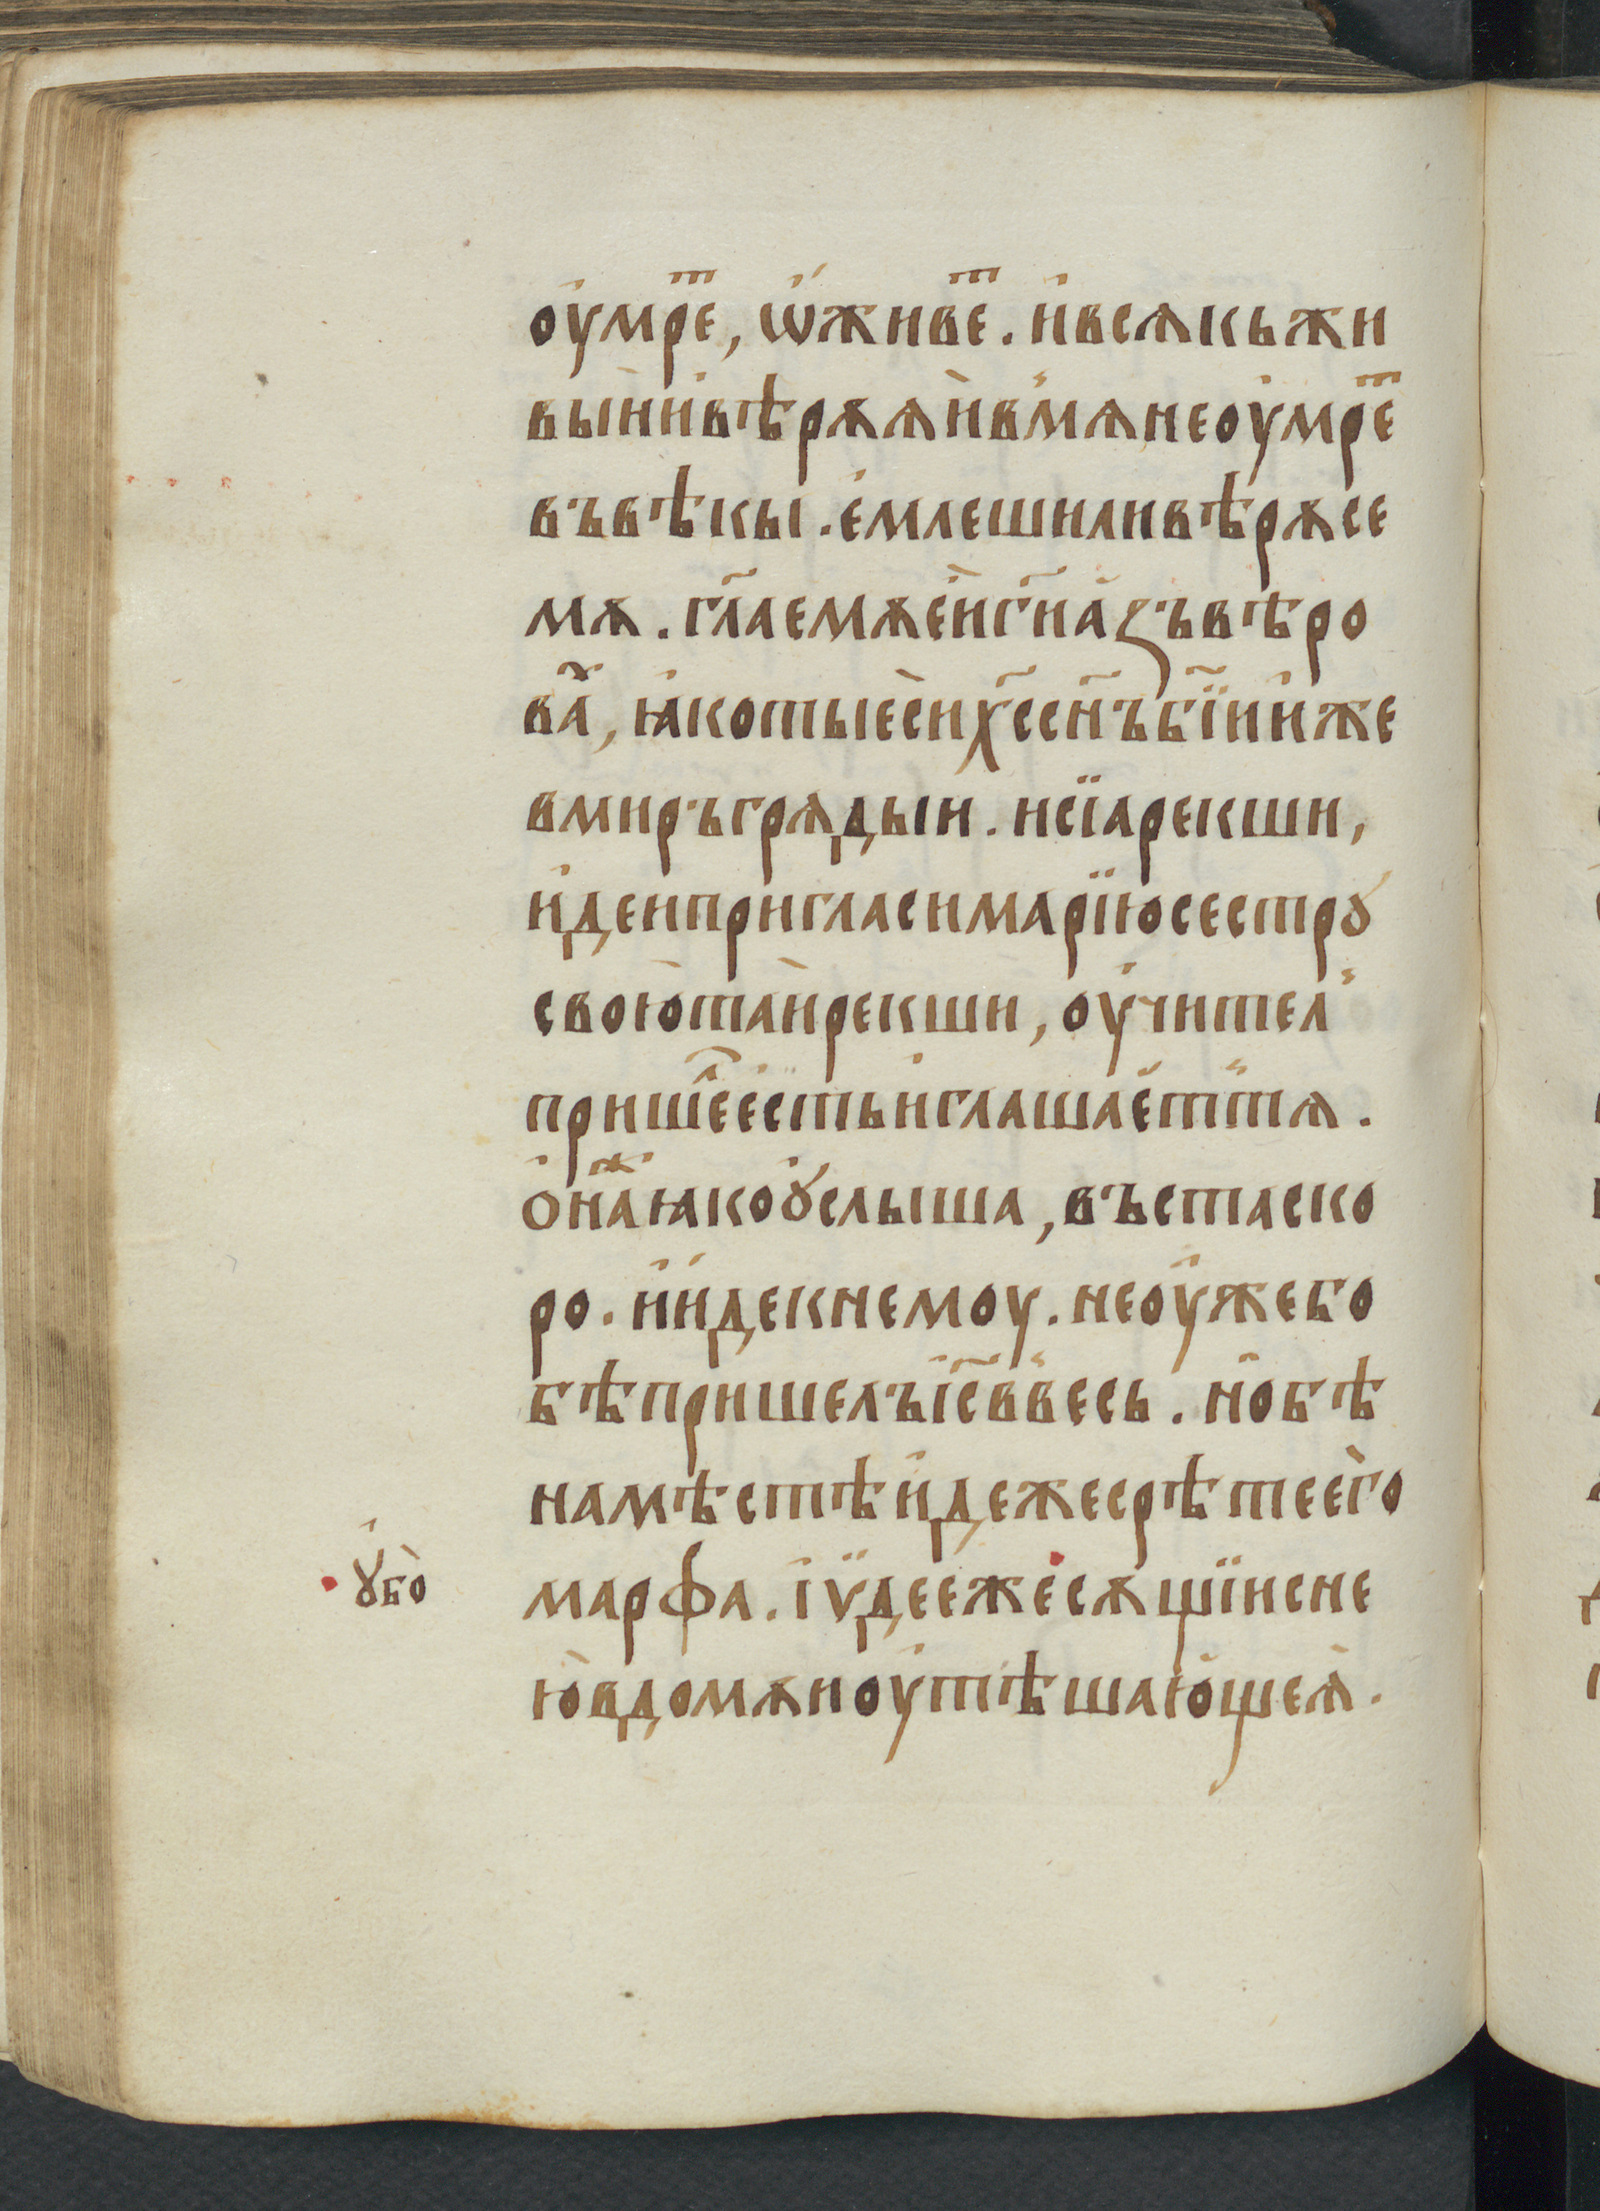 оумрⷮе, ѡ҆живⷮе. и҆всѧкьжи
выи҆и҆вѣрꙗѧи҆вмѧнеоумрⷮе
въвѣкы. е҆млешиливѣрѧсе
мѧ. гл҃аемѧе҆и҆г҃и҆а҆зъвѣро
вⷯа, ꙗкотыѥ҆сих҃ссн҃ъбж҃їии҆же
вмиръгрѧдыи. исїарекши,
и҆деипригласимарїюсестрꙋ
своютаи҆рекши, оу҆чител꙽
пришⷧеестьиглашает꙽тѧ.
о҆нⷤаꙗкоꙋ҆слыша, въстаско
ро. и҆и҆декнемоу. неоу҆жебо
бѣпришелъі҆с҃в꙽весь. но҆бѣ
намѣстѣи҆дежесрѣтеего
марфа. іѵ҆дееже҆сѧщїисне
ювдомѧиоу҆тѣшающеѧ.
ꙋ҆бо